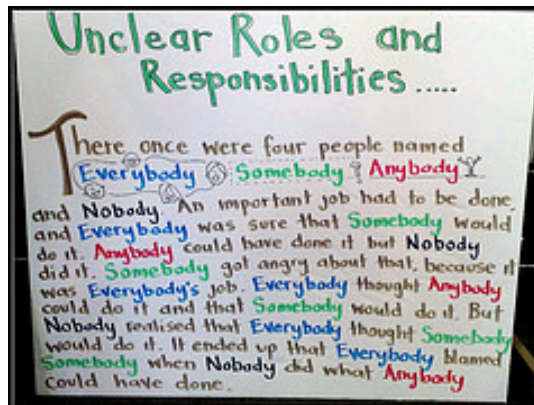 Unclear Roles and
Responsibilities .....
There once were four people named
Everybody Somebody Anybody
and Nobody. An important job had to be done
and Everybody was sure that Somebody would
do it. Anybody could have done it but Nobody
did it. Somebody got angry about that, because it
was Everybody's job. Everybody thought Anybody
could do it and that Somebody would do it. But
Nobody realised that Everybody thought Somebody
would do it. It ended up that Everybody blamed
Somebody when Nobody did what Anybody
could have done.